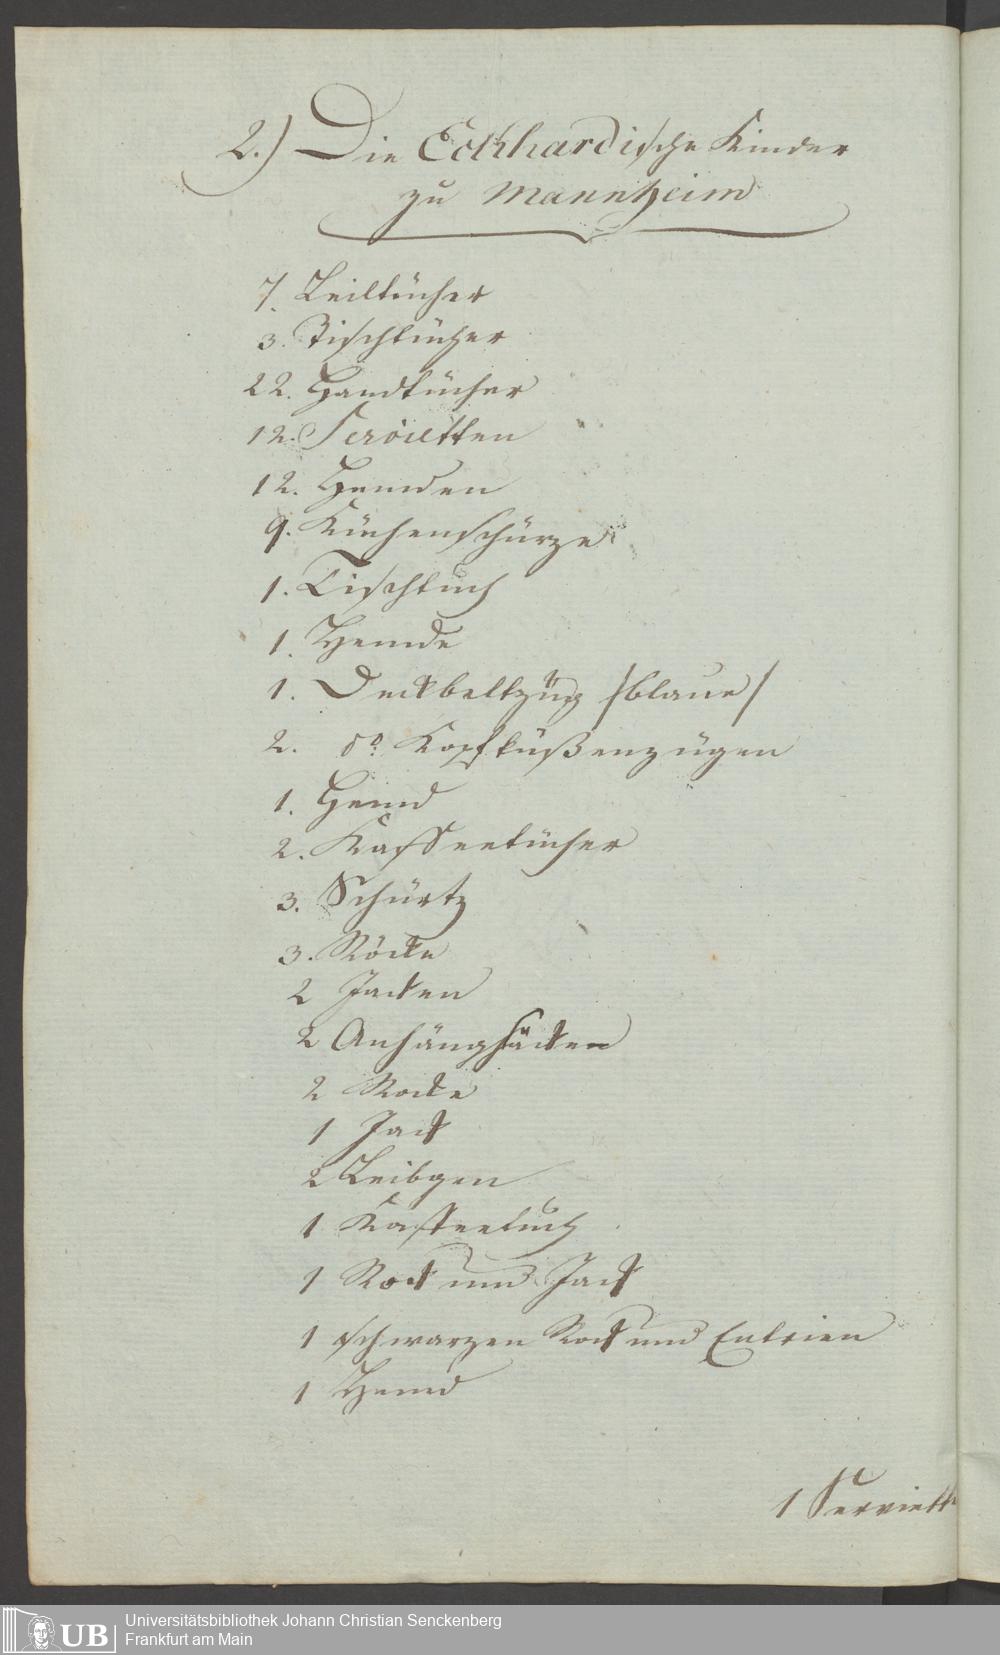 2.) Die Eckhardische Kinder
zu Mannheim
7. Leiltücher
3. Tischtücher
22. Handtücher
12. Servietten
12. Hemden
9. Küchenschürze
1. Tischtuch
1. Hemde
1. Deckbettzüg /blaue/
2. do Kopfküßenzügen
1. Hemd
2. Kaffeetücher
3. Schürtz
3. Röcke
2 Jacken
2 Anhängsäcken
2 Rocke
1 Jack
2 Leibgen
1 Kaffeetuch
1 Rock und Jack
1 schwarzen Rock und
1 Hemd
1 Serviett
UB
Universitätsbibliothek Johann Christian Senckenberg
Frankfurt am Main